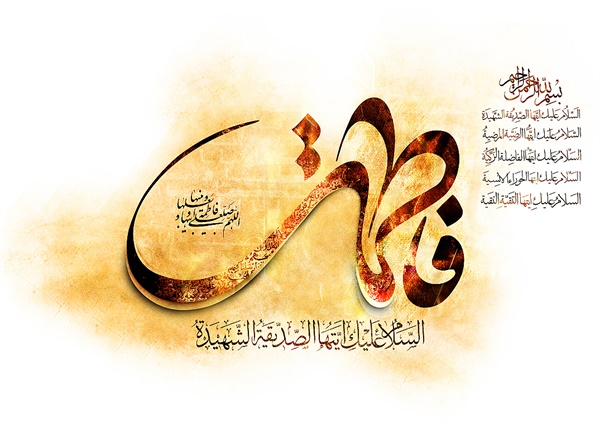 بسم الله الرحمن الرحيم
السلام عليك ايتها الصديقة الشهيدة
السلام عليك ايتها الرضية المرضية
السلام عليك ايتها الفاضلة الزكية
السلام عليك ايتها الحوراء الانسية
السلام عليك ايتها التقية النقية
فاطمة
اللهم صل على فاطمة و ابيها و بعلها و بنيها
السَّلامُ عَلَيْكِ ايَّتُهَا الصِّدّيقَةُ الشَّهيدَةُ